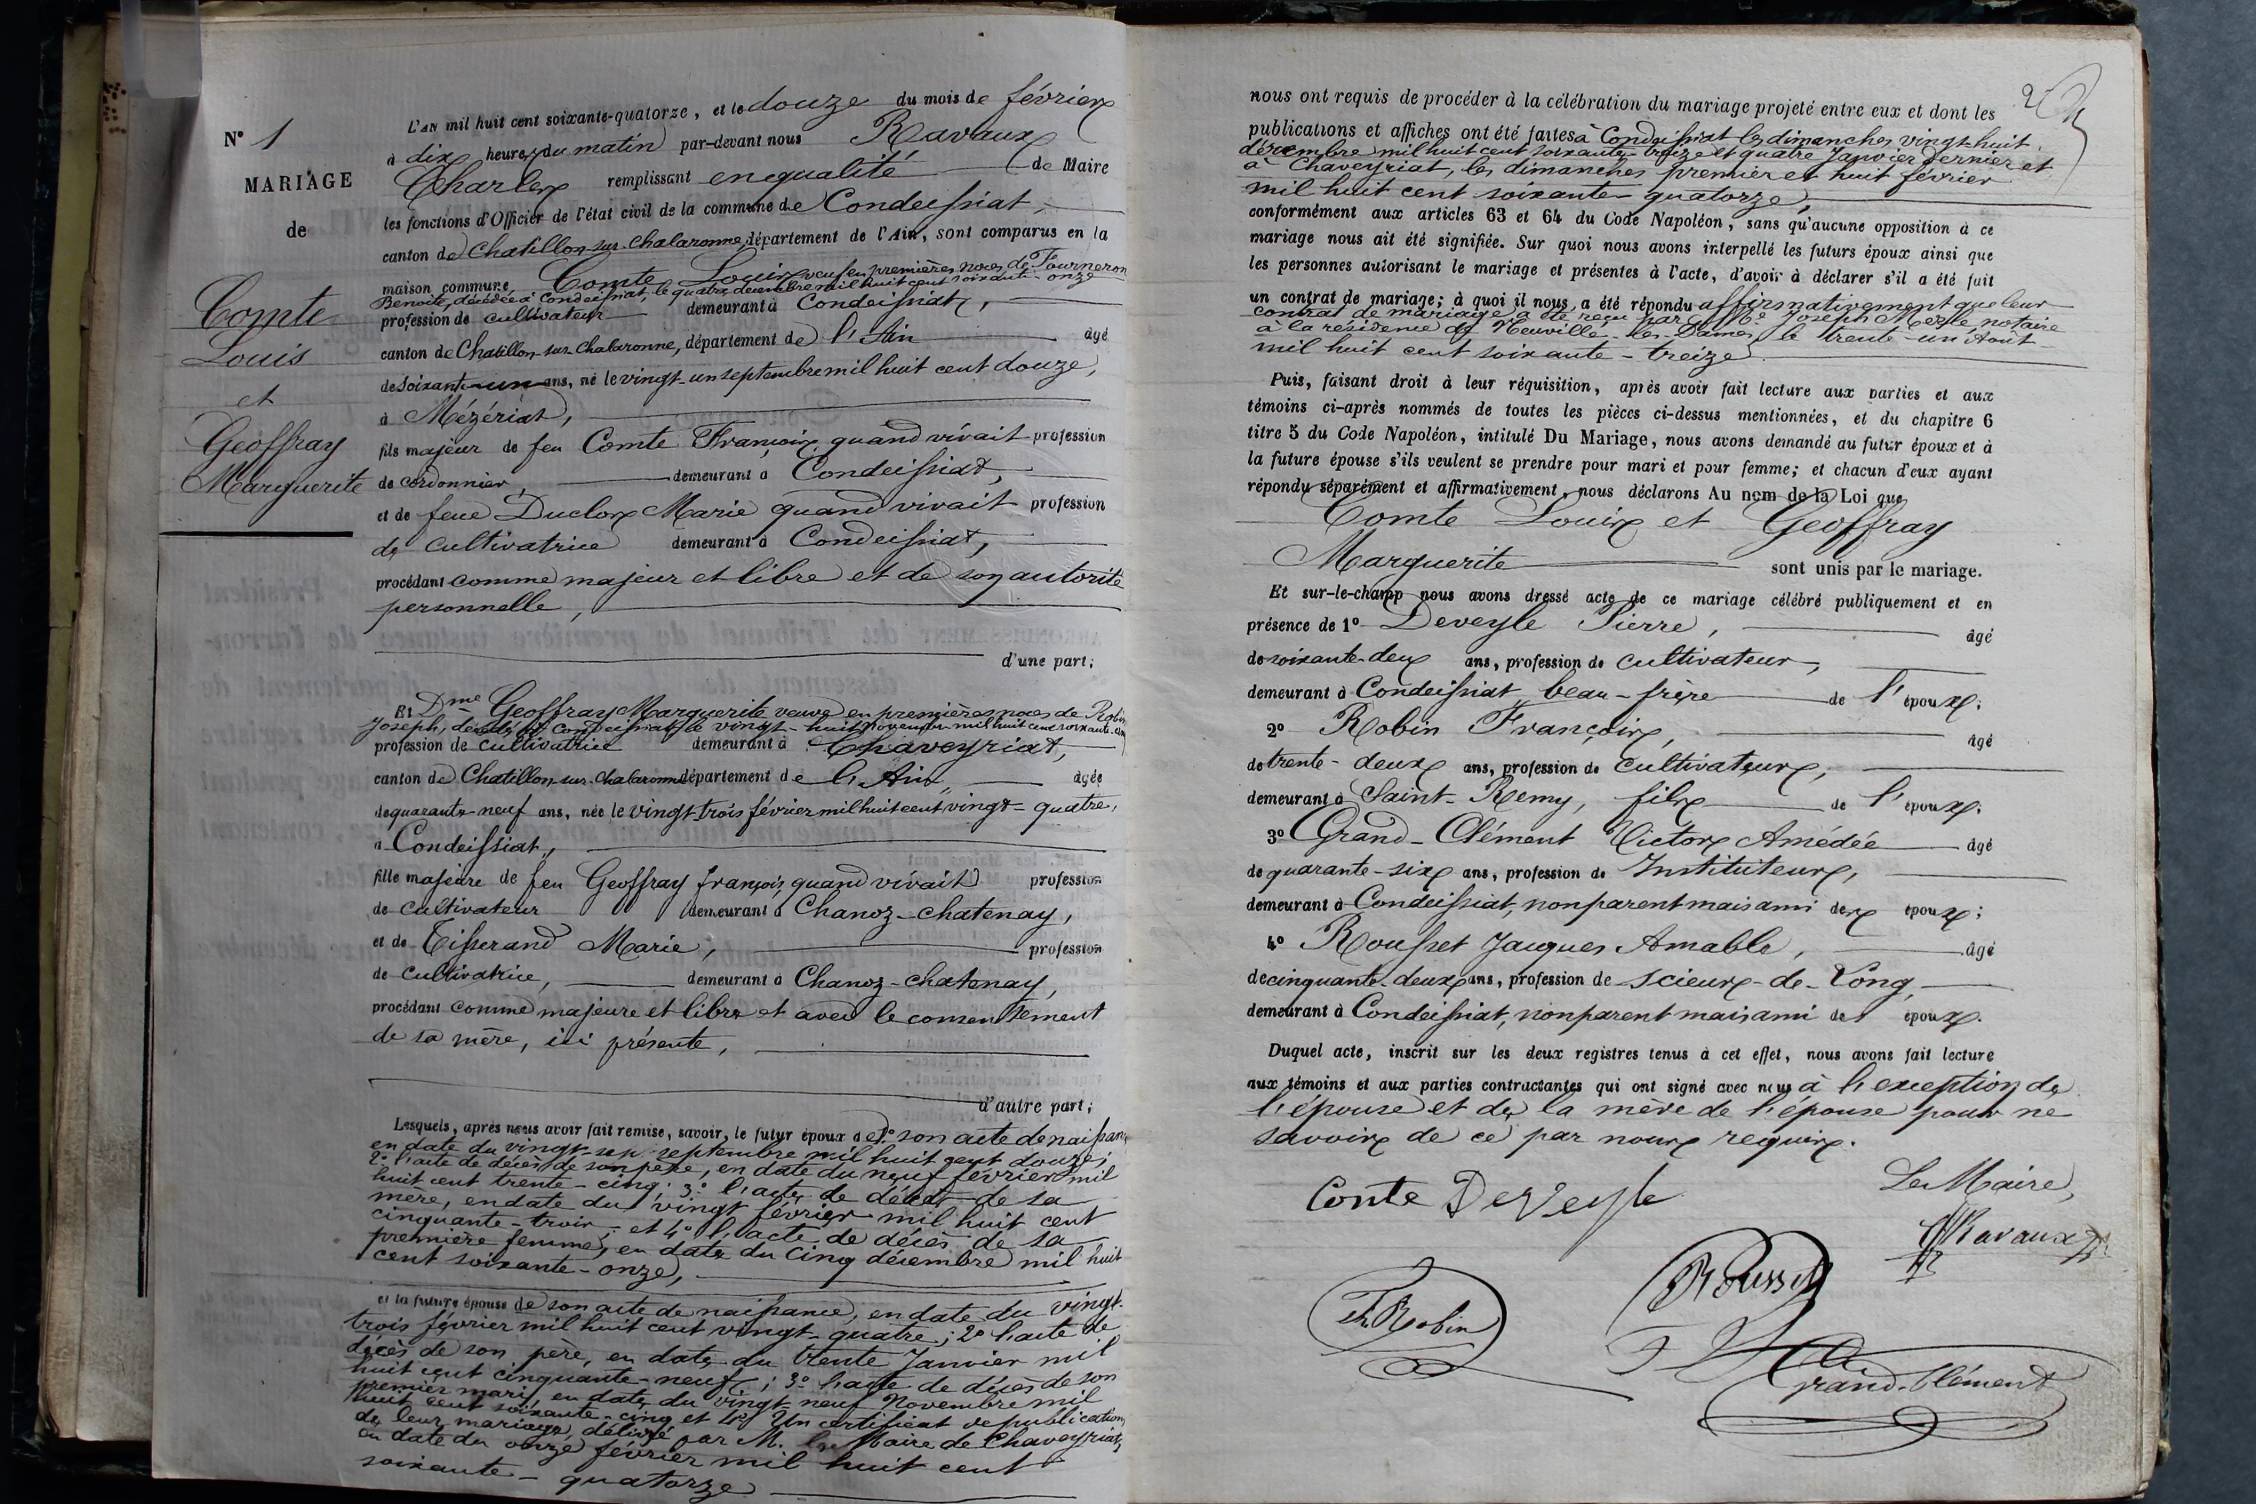 N° 1
MARIAGE
de
Comte
Louis
et
Geoffray
Marguerite
L'AN mil huit cent soixante-quatorze, et le douze du mois de février
à dix heures du matin par-devant nous Ravaux
Charles remplissant en qualité de Maire
les fonctions d'Officier de l'état civil de la commune de Condeissiat,
canton de Chatillon-sur-Chalaronne, département de l'Ain, sont comparus en la
maison commune, Comte Louis, veuf en premières noces de Fourneron
Benoite, décédée à Condeissiat, le quatre décembre mil huit cent soixante-onze
profession de cultivateur demeurant à Condeissiat,
canton de Chatillon-sur-Chalaronne, département de l'Ain âgé
de soixante-un ans, né le vingt-un septembre mil huit cent douze,
à Mézériat,
fils majeur de feu Comte François, quand vivait profession
de cordonnier, demeurant à Condeissiat,
et de feue Duclos Marie quand vivait profession
de cultivatrice demeurant à Condeissiat,
procédant comme majeur et libre et de son autorité
personnelle,
d'une part;
Et Dme Geoffray Marguerite veuve en premières noces de Robin
Joseph, décédé à Condeissiat le vingt-huit novembre mil huit cent soixante-cinq
profession de cultivatrice demeurant à Chaveyriat,
canton de Chatillon-sur-Chalaronne département de l'Ain, âgée
de quarante-neuf ans, née le vingt-trois février mil huit cent vingt-quatre,
à Condeissiat,
fille majeure de feu Geoffray françois, quand vivait profession
de cultivateur demeurant à Chanoz-chatenay,
et de Tisserand Marie, profession
de cultivatrice, demeurant à Chanoz-chatenay,
procédant comme majeure et libre et avec le consentement
de sa mère, ici présente,
d'autre part;
Lesquels, après nous avoir fait remise, savoir, le futur époux de 1° son acte de naissance
en date du vingt-sep septembre mil huit cent douze;
2° l'acte de décès de son père, en date du neuf février mil
huit cent trente-cinq; 3° l'acte de décès de sa
mère, en date du vingt février mil huit cent
cinquante-trois; et 4° l'acte de décès de sa
première femme, en date du cinq décembre mil huit
cent soixante-onze,
et la future épouse de son acte de naissance, en date du vingt-
trois février mil huit cent vingt-quatre; 2° l'acte de
décès de son père, en date du trente Janvier mil
huit cent cinquante-neuf; 3° l'acte de décès de son
premier mari, en date du vingt-neuf Novembre mil
huit cent soixante-cinq et 4° Un certificat de publication
de leur mariage, délivré par M. le Maire de Chaveyriat,
en date du onze février mil huit cent
soixante-quatorze
2
nous ont requis de procéder à la célébration du mariage projeté entre eux et dont les
publications et affiches ont été faites à Condeissiat les dimanches vingt-huit
décembre mil huit cent soixante-treize et quatre Janvier dernier et
à Chaveyriat, les dimanches premier et huit février
mil huit cent soixante-quatorze,
conformément aux articles 63 et 64 du Code Napoléon, sans qu'aucune opposition à ce
mariage nous ait été signifiée. Sur quoi nous avons interpellé les futurs époux ainsi que
les personnes autorisant le mariage et présentes à l'acte, d'avoir à déclarer s'il a été fait
un contrat de mariage; à quoi il nous a été répondu affirmativement que leur
contrat de mariage a été reçu par Me Joseph Merle notaire
à la résidence de Neuville-les-Dames, le trente-un Août
mil huit cent soixante-treize.
Puis, faisant droit à leur réquisition, après avoir fait lecture aux parties et aux
témoins ci-après nommés de toutes les pièces ci-dessus mentionnées, et du chapitre 6
titre 5 du Code Napoléon, intitulé Du Mariage, nous avons demandé au futur époux et à
la future épouse s'ils veulent se prendre pour mari et pour femme; et chacun d'eux ayant
répondu séparément et affirmativement, nous déclarons Au nom de la Loi que
Comte Louis et Geoffray
Marguerite sont unis par le mariage.
Et sur-le-champ nous avons dressé acte de ce mariage célébré publiquement et en
présence de 1° Deveyle Pierre, âgé
de soixante-deux ans, profession de cultivateur,
demeurant à Condeissiat beau-frère de l'époux;
2° Robin François, âgé
de trente-deux ans, profession de cultivateur,
demeurant à Saint-Remy, fils de l'époux;
3° Grand-Clément Victor Amédée âgé
de quarante-six ans, profession de Instituteur,
demeurant à Condeissiat, non parent mais ami des époux;
4° Rousset Jacques Amable, âgé
de cinquante-deux ans, profession de scieur-de-Long,
demeurant à Condeissiat, non parent mais ami des époux.
Duquel acte, inscrit sur les deux registres tenus à cet effet, nous avons fait lecture
aux témoins et aux parties contractantes qui ont signé avec nous à l'exception de
l'épouse et de la mère de l'épouse pour ne
savoir de ce par nous requis.
Conte DeVeyle
Le Maire,
Ravaux
Fs Robin
Rousset
Grand-Clément